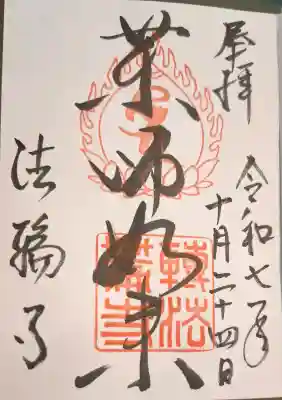 奉拝
令和七年
十月二十四日
薬師如来
法輪寺